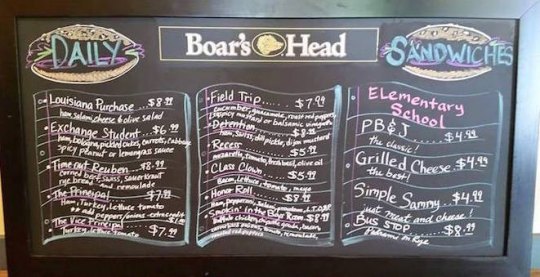 DAILY
Boar's Head
SANDWICHES
Louisiana Purchase...$8.99
ham, salami, cheese & olive salad
Exchange Student...$6.99
ham, bologna, pickled cukes, carrots, cabbage
spicy peanut or lemongrass sauce
Time out Reuben...$8.99
corned beef, swiss, sauerkraut
rye bread and remoulade
The Principal...$7.99
Ham, Turkey, lettuce tomato
** add peppers/onions extra credit
The Vice Principal
Turkey, lettuce, tomato $7.99
Field Trip....$7.99
cucumber, guacamole, roasted peppers,
spicy mustard or balsamic vinegar
Detention...$8.99
ham, swiss, dill pickle, dijon mustard
Recess...$5.99
mozzarella, tomato, fresh basil, olive oil
Class Clown...$5.99
Bacon, lettuce, tomato, mayo
Honor Roll...$8.99
Ham, pepperoni, salami, provolone, L.T.O.
Smokin' in the Boys Room...$8.99
buffalo chicken, gouda, bacon,
remoulade,
roasted red peppers
Elementary
School
PB&J...$4.99
the classic!
Grilled Cheese.$4.99
the best!
Simple Sammy.$4.99
just meat and cheese!
Bus Stop...$8.99
Pastrami on Rye